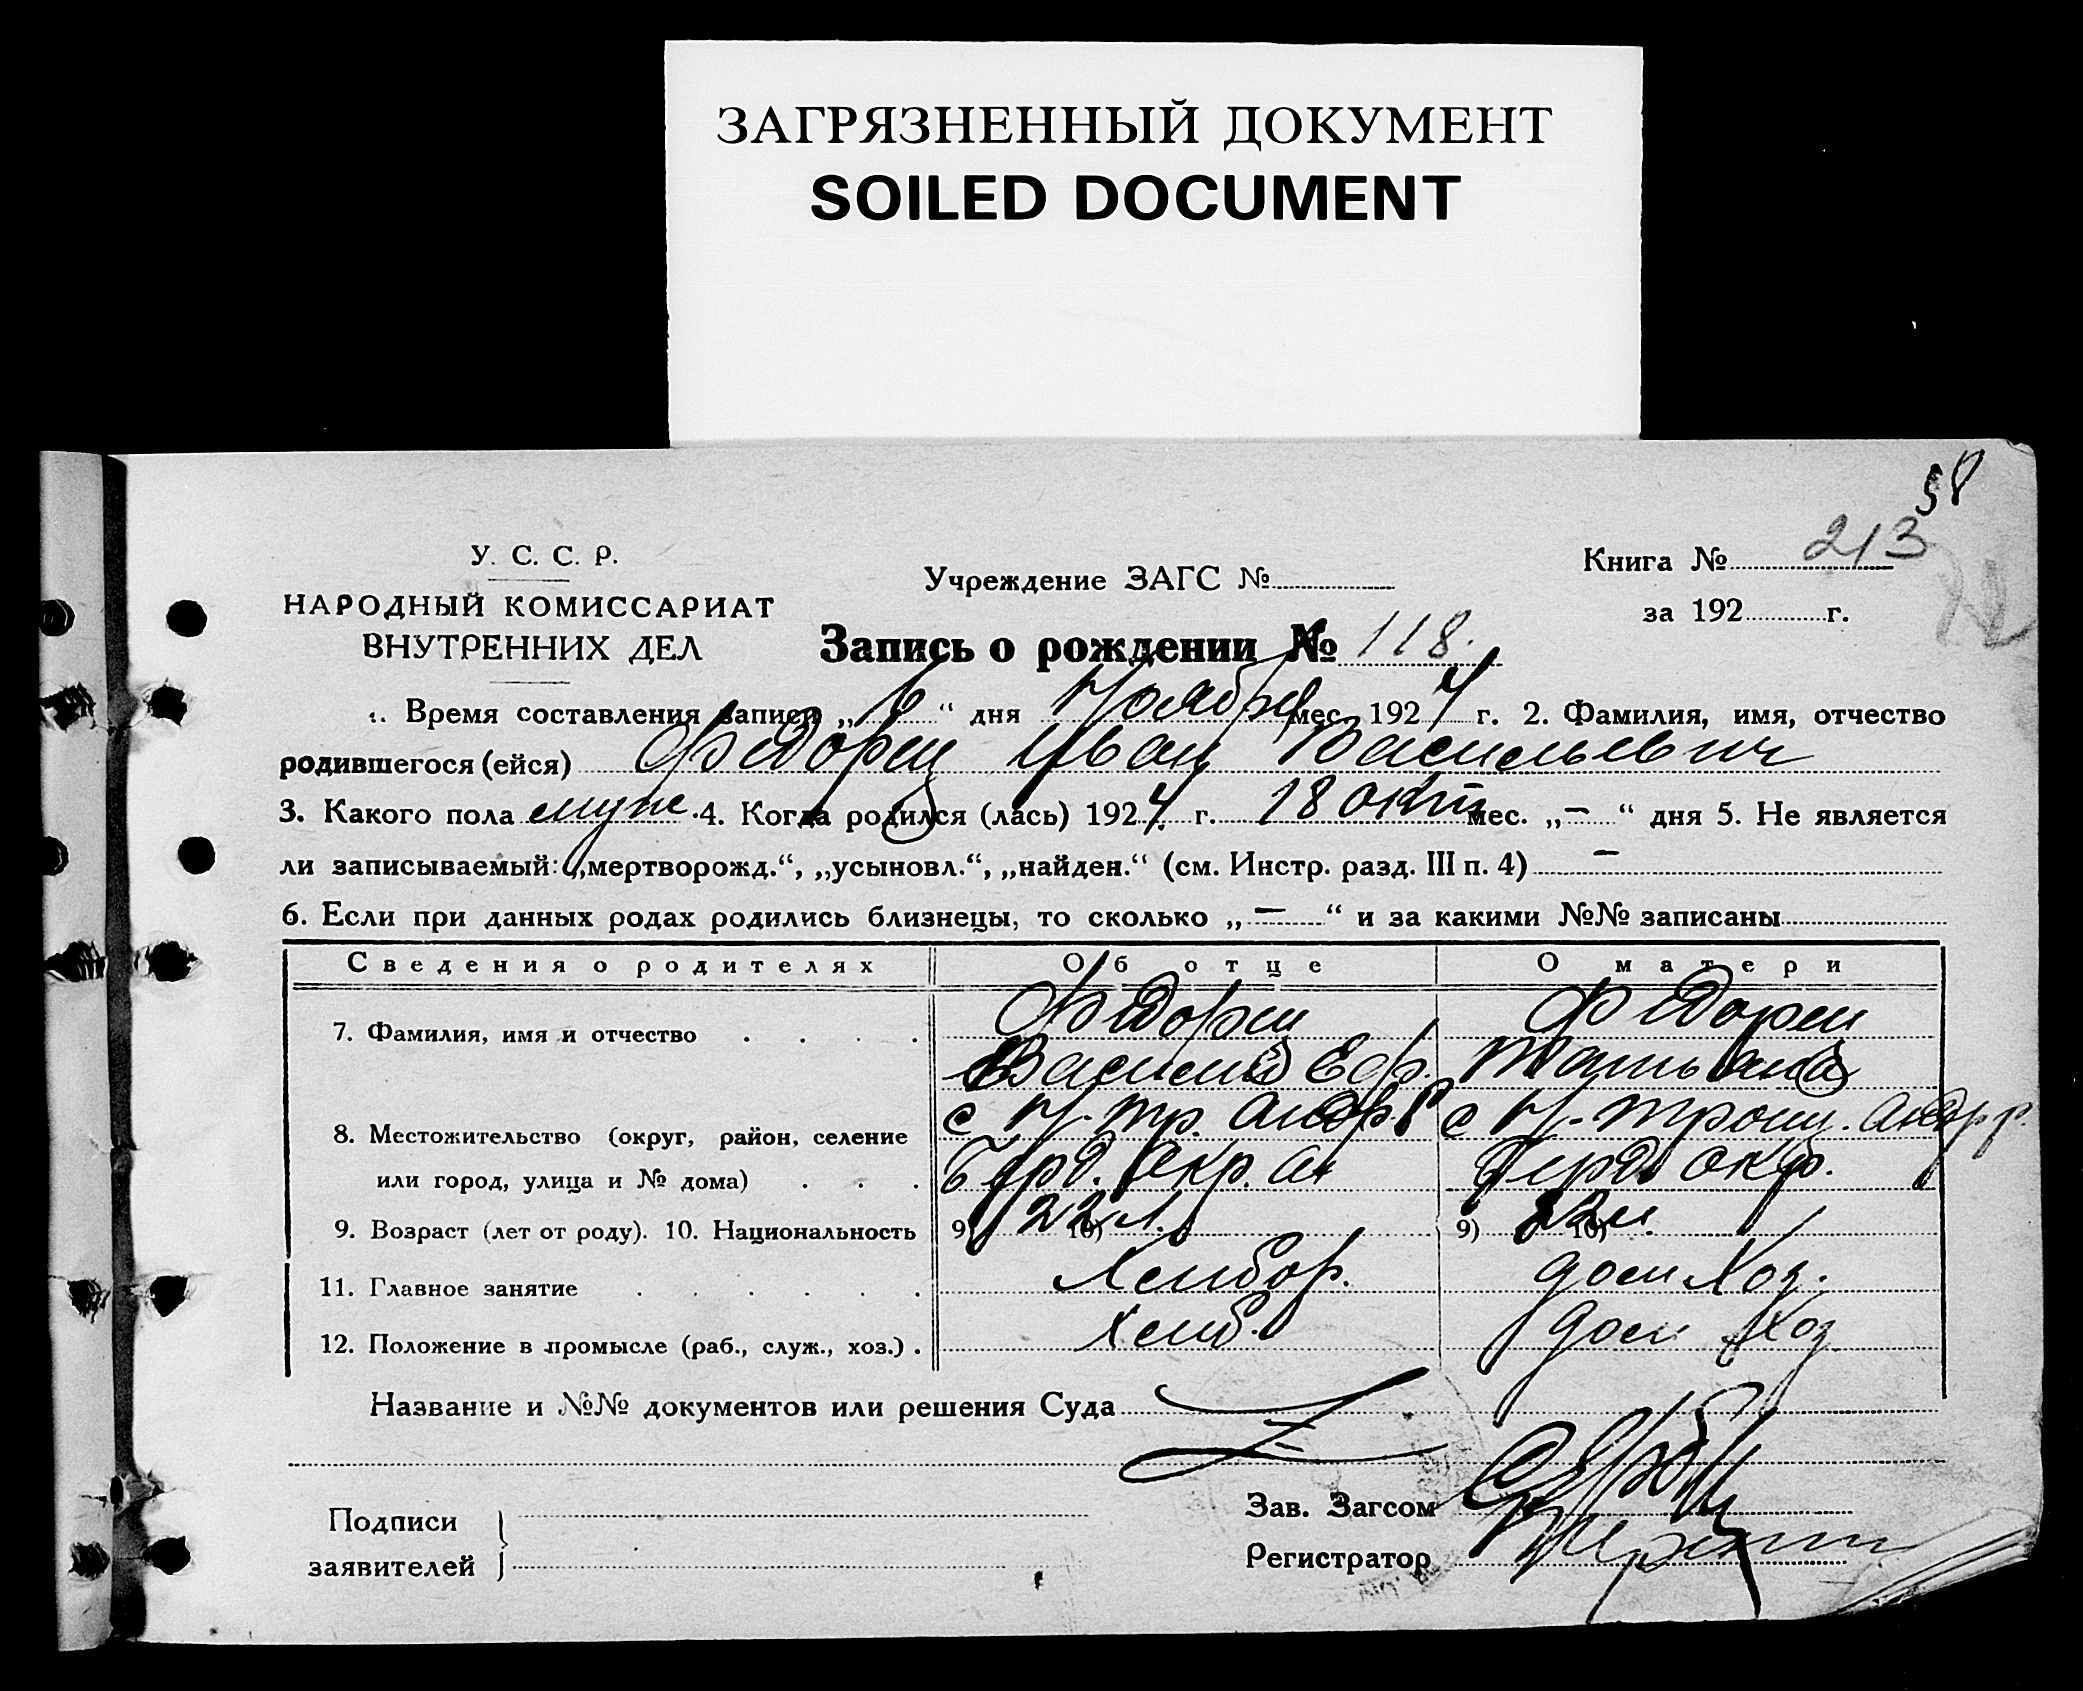 ЗАГРЯЗНЕННЫЙ ДОКУМЕНТ
SOILED DOCUMENT
58
У. С. С. Р.
НАРОДНЫЙ КОМИССАРИАТ
ВНУТРЕННИХ ДЕЛ
Учреждение ЗАГС №
Книга № 213
за 192 г.
Запись о рождении № 118.
1. Время составления записи „6“ дня Ноября мес. 1924 г. 2. Фамилия, имя, отчество
родившегося (ейся) Федорец Иван Васильевич
3. Какого пола муж. 4. Когда родился (лась) 1924 г. 18 окт. мес. „—“ дня 5. Не является
ли записываемый: „мертворожд.“, „усыновл.“, „найден.“ (см. Инстр. разд. III п. 4) —
6. Если при данных родах родились близнецы, то сколько „—“ и за какими №№ записаны
Сведения о родителях Об отце О матери
7. Фамилия, имя и отчество Федорец Федорец
Василий Еф. Татьяна
8. Местожительство (округ, район, селение с Н-тр. Андр. р с Н-Троиц. Андр р.
или город, улица и № дома) Берд. Окр. Берд. окр.
9. Возраст (лет от роду). 10. Национальность 9) 22 л. 10) 9) 22 10)
11. Главное занятие Хлебор. дом Хоз.
12. Положение в промысле (раб., служ., хоз.) Хлеб. дом Хоз
Название и №№ документов или решения Суда
Подписи
заявителей
Зав. Загсом
Регистратор